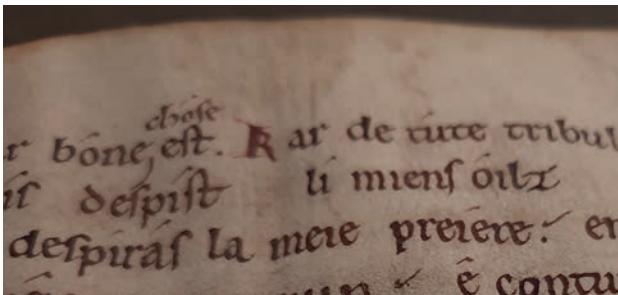 chose
r bone, est. Kar de tute tribul
is despist li miens oilz
despiras la meie preiere: en
un ê contu